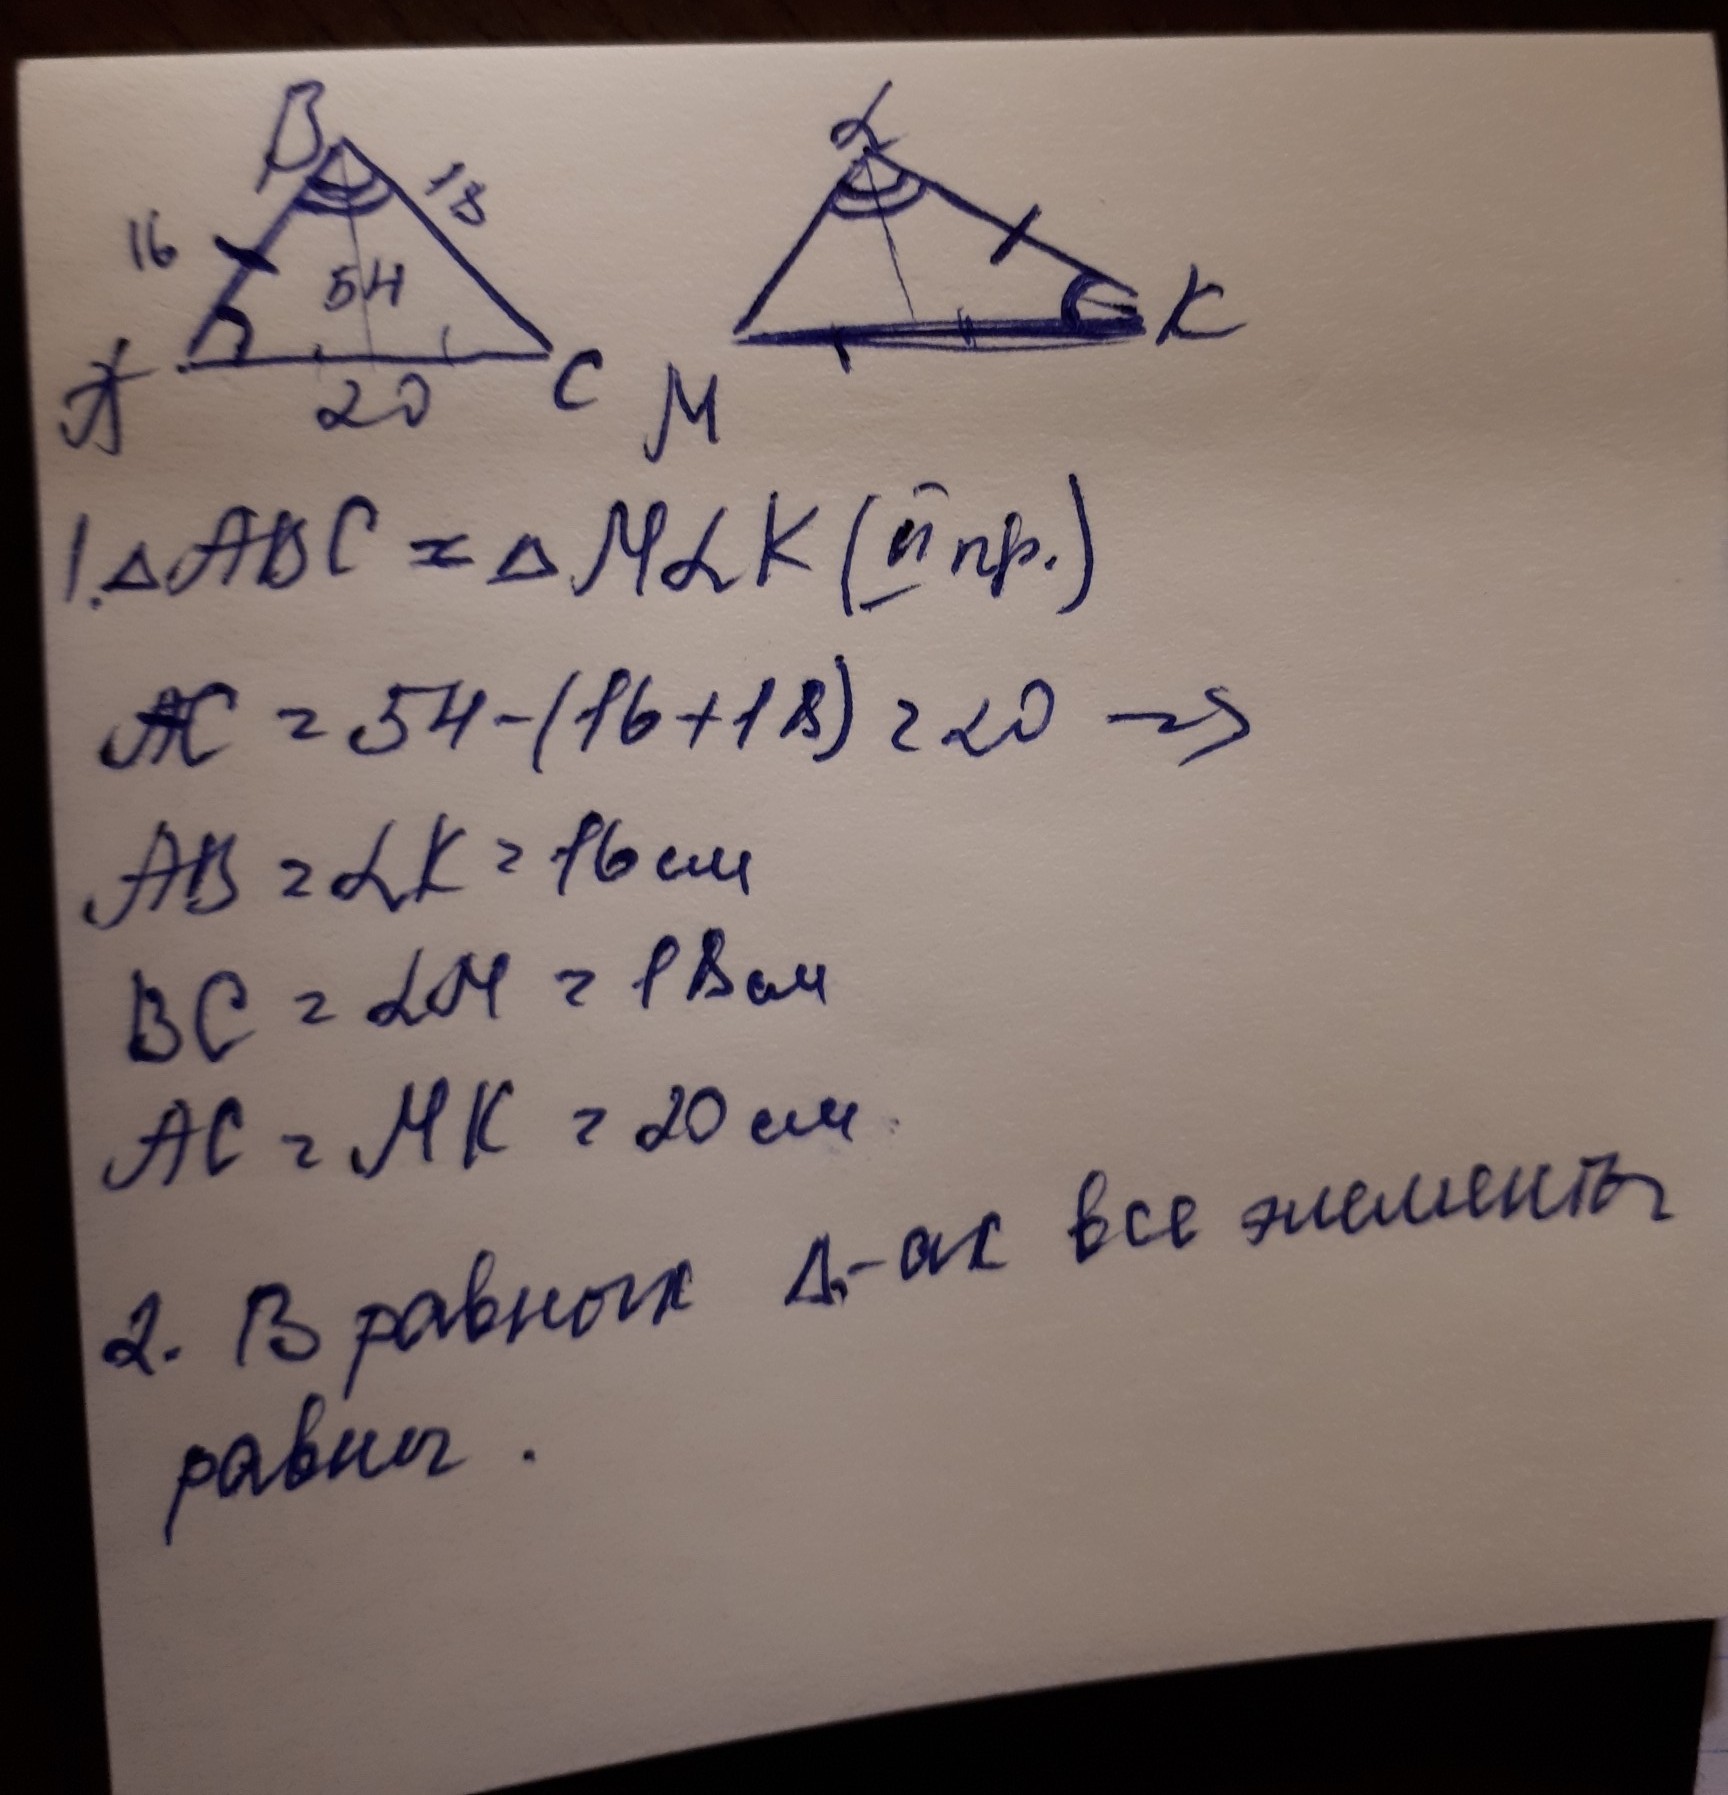 B
L
18
16
54
K
A
20
C
M
1. △ABC = △MLK (II пр.)
AC = 54-(16+18) = 20 =>
AB = LK = 16 см
BC = LM = 18 см
AC = MK = 20 см.
2. В равных △-ах все элементы
равны.